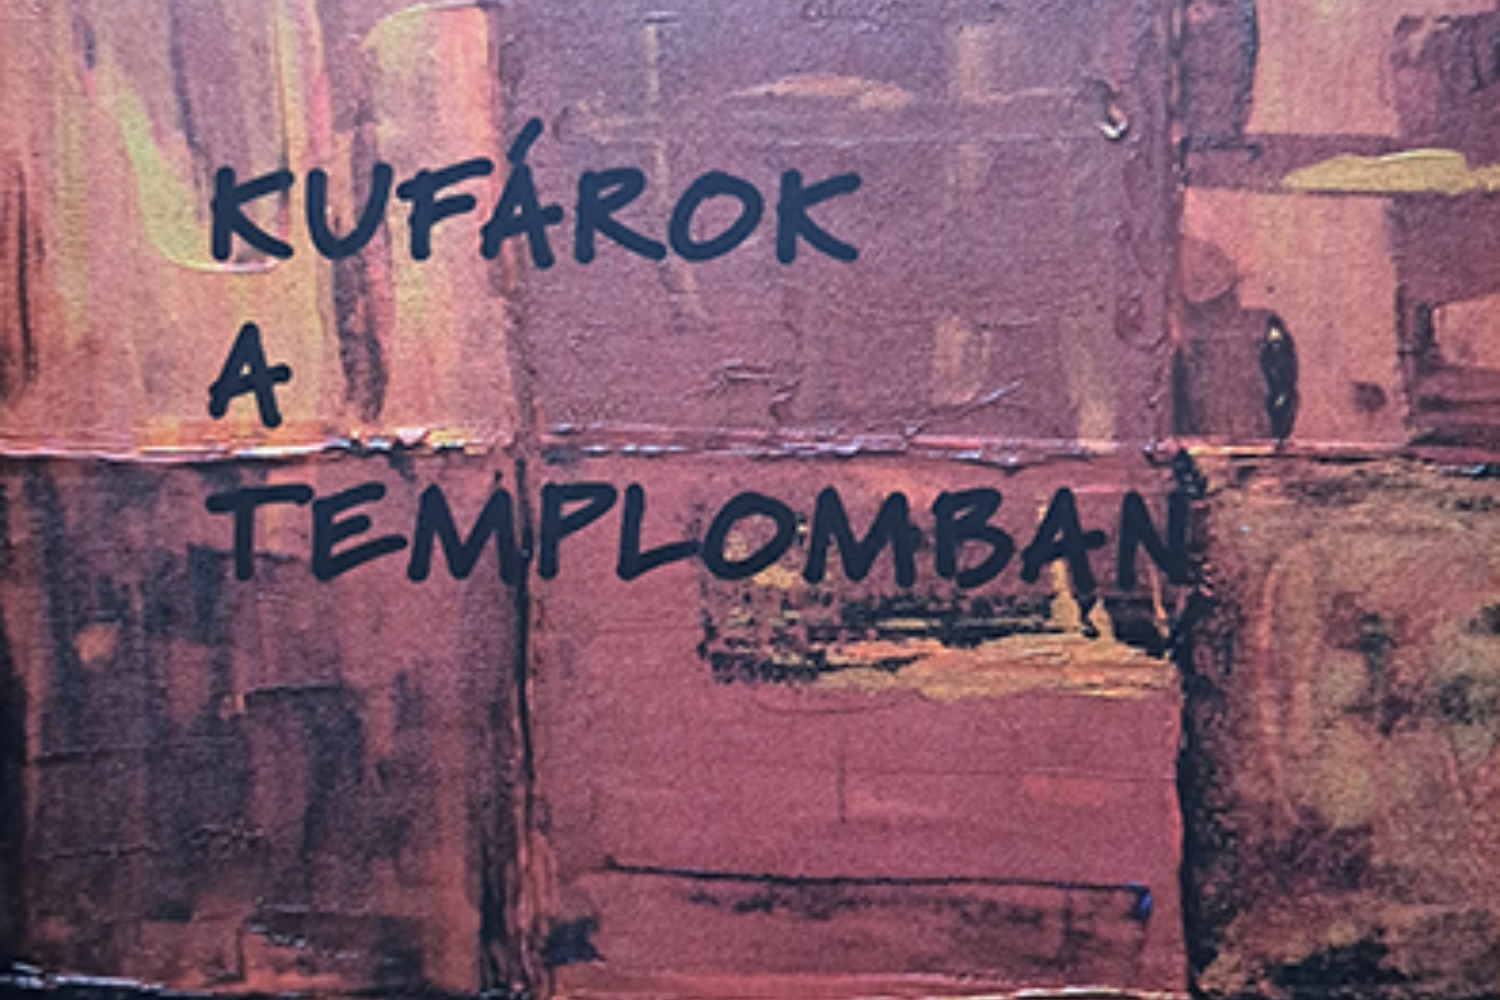 KUFÁROK
A
TEMPLOMBAN